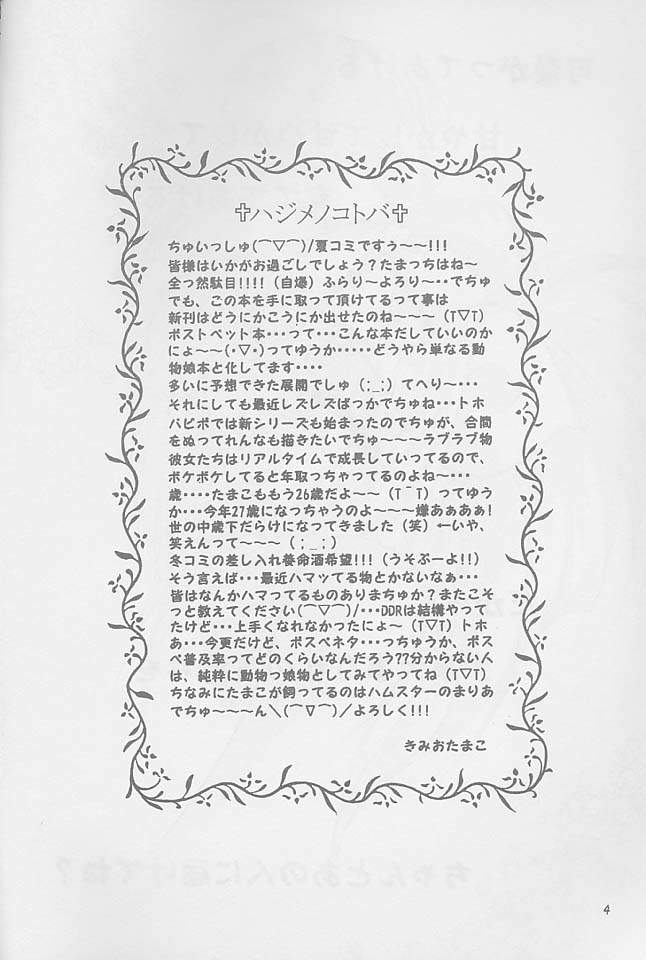 ✝ハジメノコトバ✝
ちゅいっしゅ(⌒▽⌒)/夏コミですぅ～～!!!
皆様はいかがお過ごしでしょう？たまっちはね～
全っ然駄目!!!!（自爆）ふらり～よろり～・・でちゅ
でも、この本を手に取って頂けてるって事は
新刊はどうにかこうにか出せたのね～～（T▽T）
ポストペット本・・・って・・・こんな本だしていいのか
にょ～～(・▽・)ってゆうか・・・・・どうやら単なる動
物娘本と化してます・・・・
多いに予想できた展開でしゅ（;_;）てへり～・・・
それにしても最近レズレズばっかでちゅね・・・トホ
パピポでは新シリーズも始まったのでちゅが、合間
をぬってれんなも描きたいでちゅ～～～ラブラブ物
彼女たちはリアルタイムで成長していってるので、
ボケボケしてると年取っちゃってるのよね～・・・
歳・・・・たまこももう26歳だよ～～（T¯T）ってゆう
か・・・今年27歳になっちゃうのよ～～～～嫌あぁあぁ!
世の中歳下だらけになってきました（笑）←いや、
笑えんって～～～（;_;）
冬コミの差し入れ養命酒希望!!!（うそぷーよ!!）
そう言えば・・・最近ハマッてる物とかないなぁ・・・
皆はなんかハマってるものありまちゅか？またこそ
っと教えてください(⌒▽⌒)/・・・DDRは結構やって
たけど・・・上手くなれなかったにょ～（T▽T）トホ
あ・・・今更だけど、ポスペネタ・・・っちゅうか、ポス
ペ普及率ってどのくらいなんだろう??分からない人
は、純粋に動物っ娘物としてみてやってね（T▽T）
ちなみにたまこが飼ってるのはハムスターのまりあ
でちゅ～～～ん＼(⌒▽⌒)／よろしく!!!
きみおたまこ
ちゃんとあの人に届けてね？
4